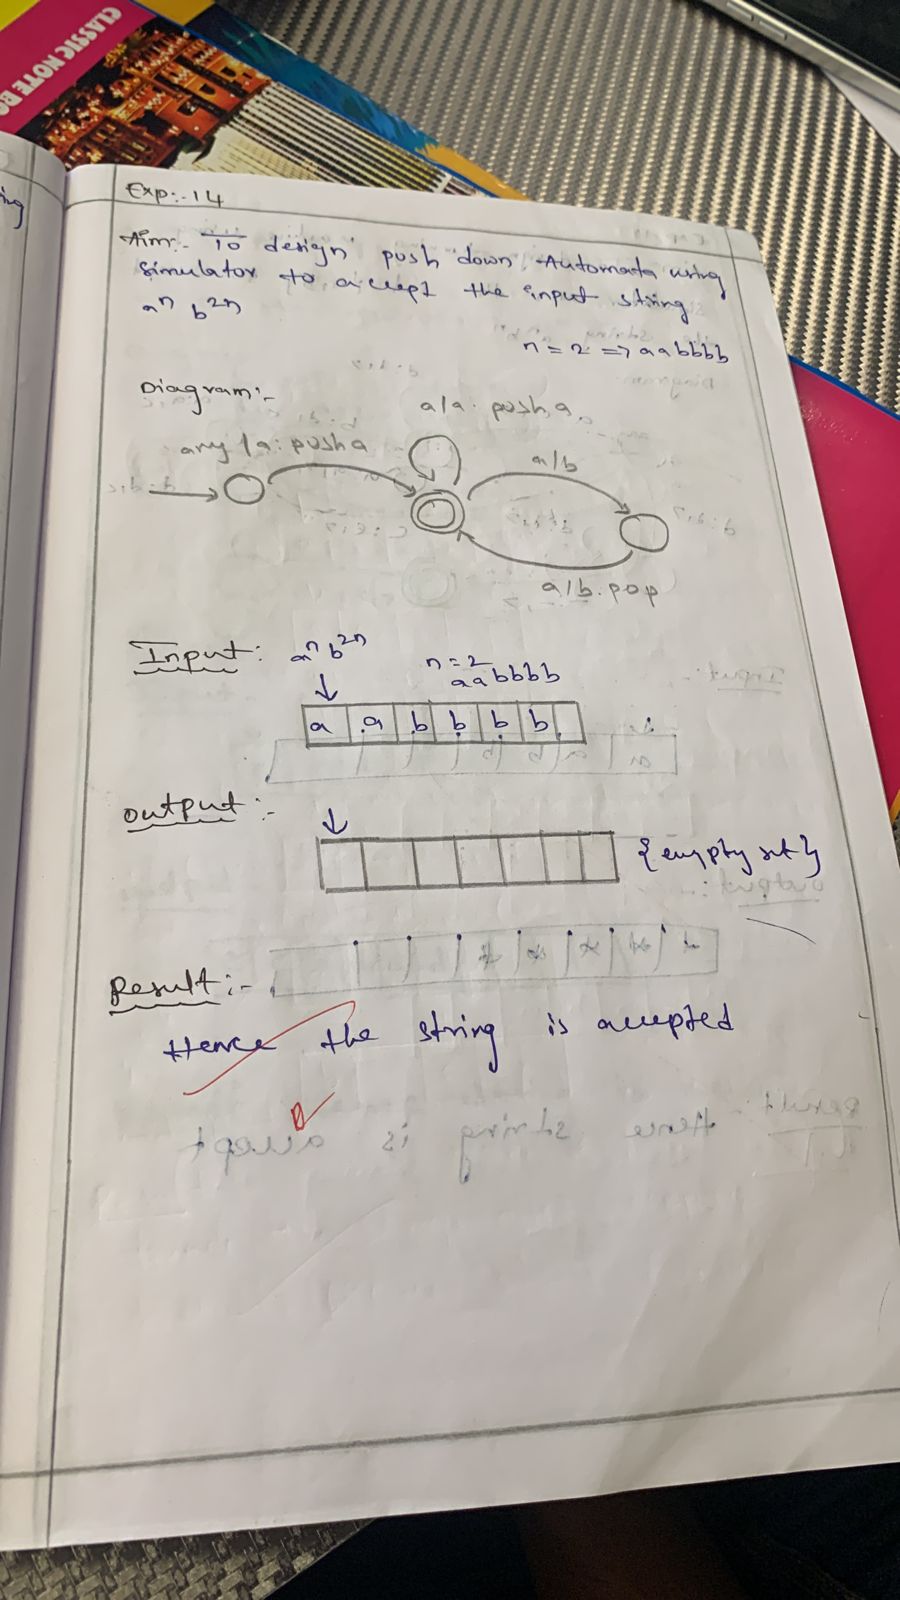 CLASSIC NOTE BO
ing
Exp:- 14
Aim:- To design push down Automata using
simulator to accept the input string
aⁿ b²ⁿ
n = 2 => aabbbb
Diagram:-
a/a: push a
any/a: push a
a/b
a/b.pop
Input: aⁿb²ⁿ
n = 2
aabbbb
a a b b b b
output:-
{empty set}
Result:-
Hence the string is accepted